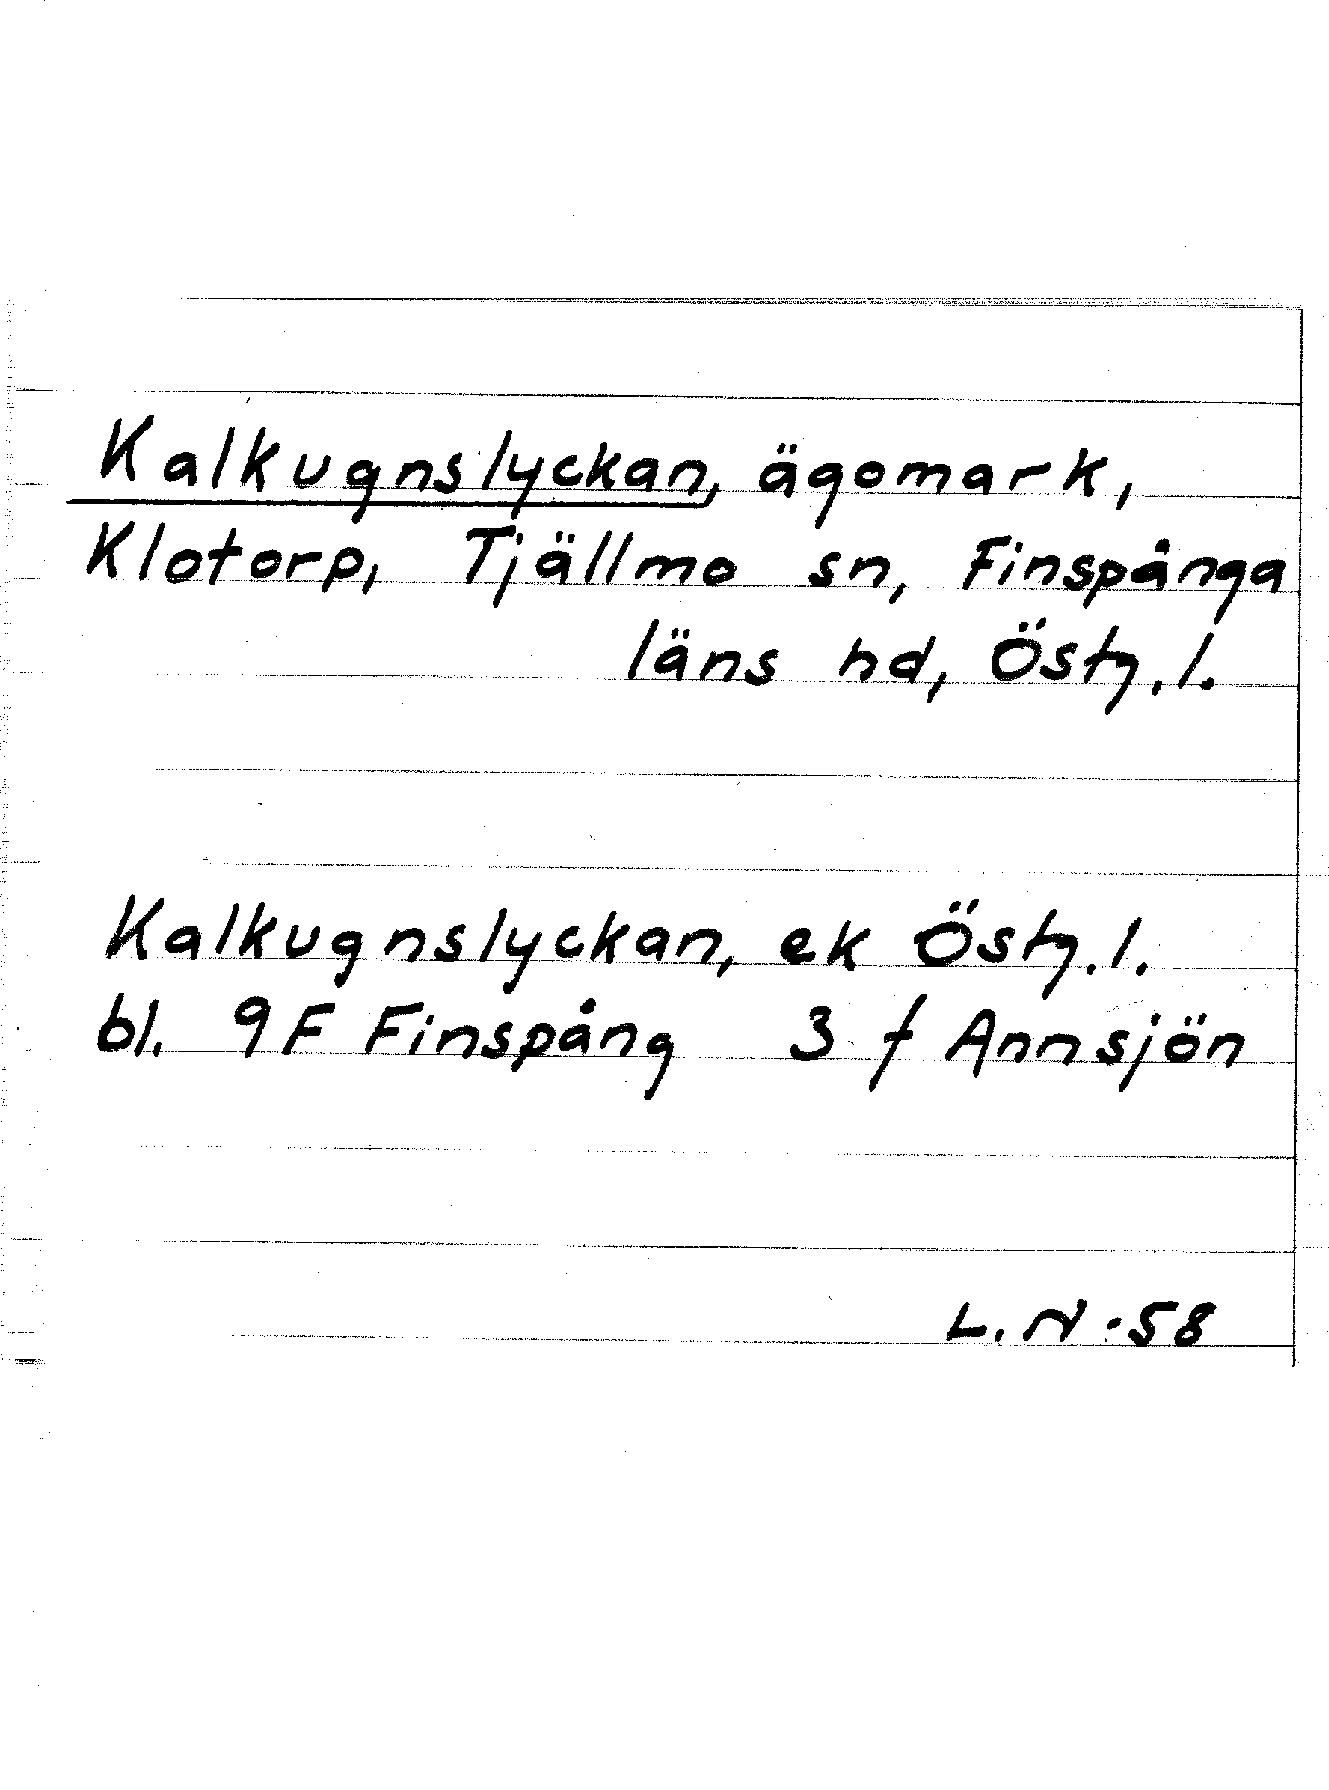 Kalkugnslyckan, ägomark,
Klotorp, Tjällmo sn, Finspånga
läns hd, Östg. l.
Kalkugnslyckan, ek Östg. l.
bl. 9F Finspång 3 f Annsjön
L. N -58